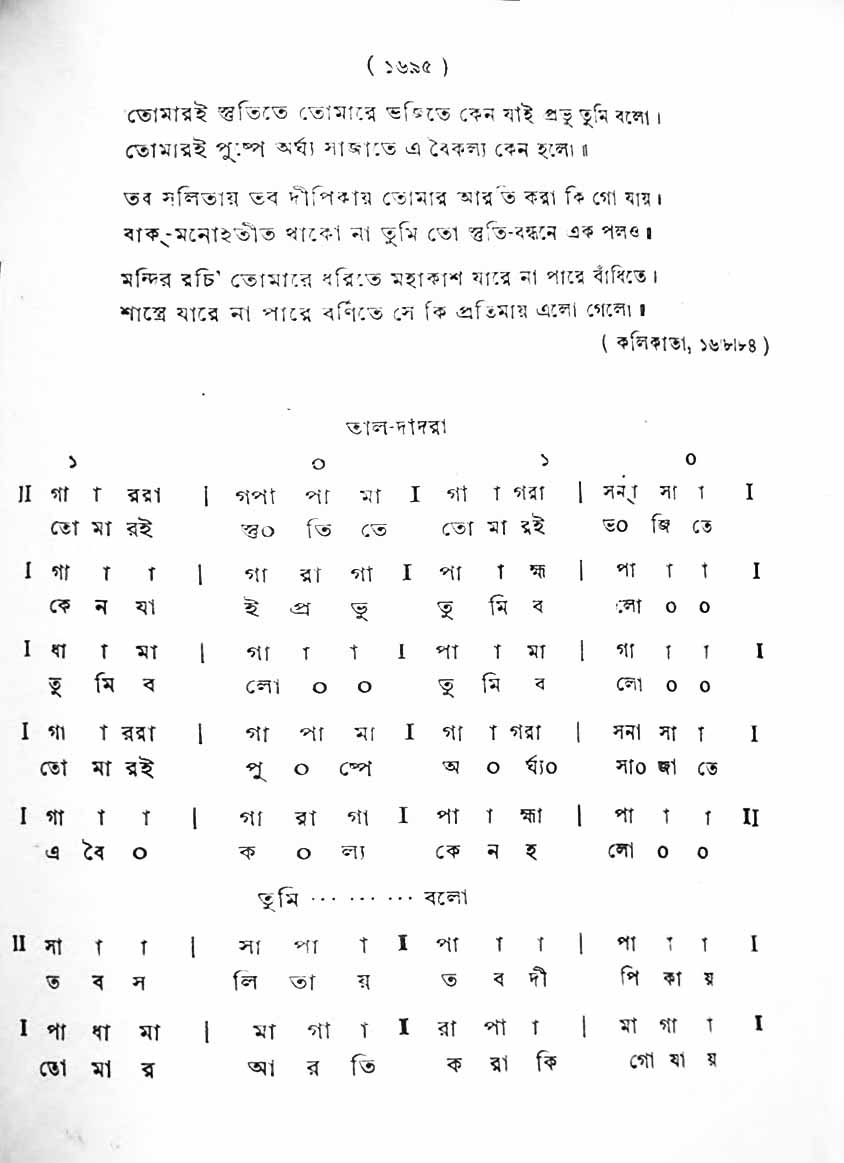 ( ১৬৯৫ )
তোমারই স্তুতিতে তোমারে ভজিতে কেন যাই প্রভু তুমি বলো।
তোমারই পুষ্পে অর্ঘ্য সাজাতে এ বৈকল্য কেন হলো॥
তব সলিতায় তব দীপিকায় তোমার আরতি করা কি গো যায়।
বাক্-মনোহতীত থাকো না তুমি তো স্তুতি-বন্ধনে এক পলও॥
মন্দির রচি' তোমারে ধরিতে মহাকাশ যারে না পারে বাঁধিতে।
শাস্ত্রে যারে না পারে বর্ণিতে সে কি প্রতিমায় এলো গেলো॥
( কলিকাতা, ১৬।৮।৮৪ )
তাল-দাদরা
১ ০ ১ ০
II গা া ররা | গপা পা মা I গা া গরা | সন্া সা া I
তো মা রই স্তু০ তি তে তো মা রই ভ০ জি তে
I গা া া | গা রা গা I পা া হ্ম | পা া া I
কে ন যা ই প্র ভু তু মি ব লো ০ ০
I ধা া মা | গা া া I পা া মা | গা া া I
তু মি ব লো ০ ০ তু মি ব লো ০ ০
I গা া ররা | গা পা মা I গা া গরা | সনা সা া I
তো মা রই পু ০ ষ্পে অ ০ র্ঘ্য০ সা০ জা তে
I গা া া | গা রা গা I পা া হ্মা | পা া া II
এ বৈ ০ ক ০ ল্য কে ন হ লো ০ ০
তুমি ... ... ... বলো
II সা া া | সা পা া I পা া া | পা া া I
ত ব স লি তা য় ত ব দী পি কা য়
I পা ধা মা | মা গা া I রা পা া | মা গা া I
তো মা র আ র তি ক রা কি গো যা য়